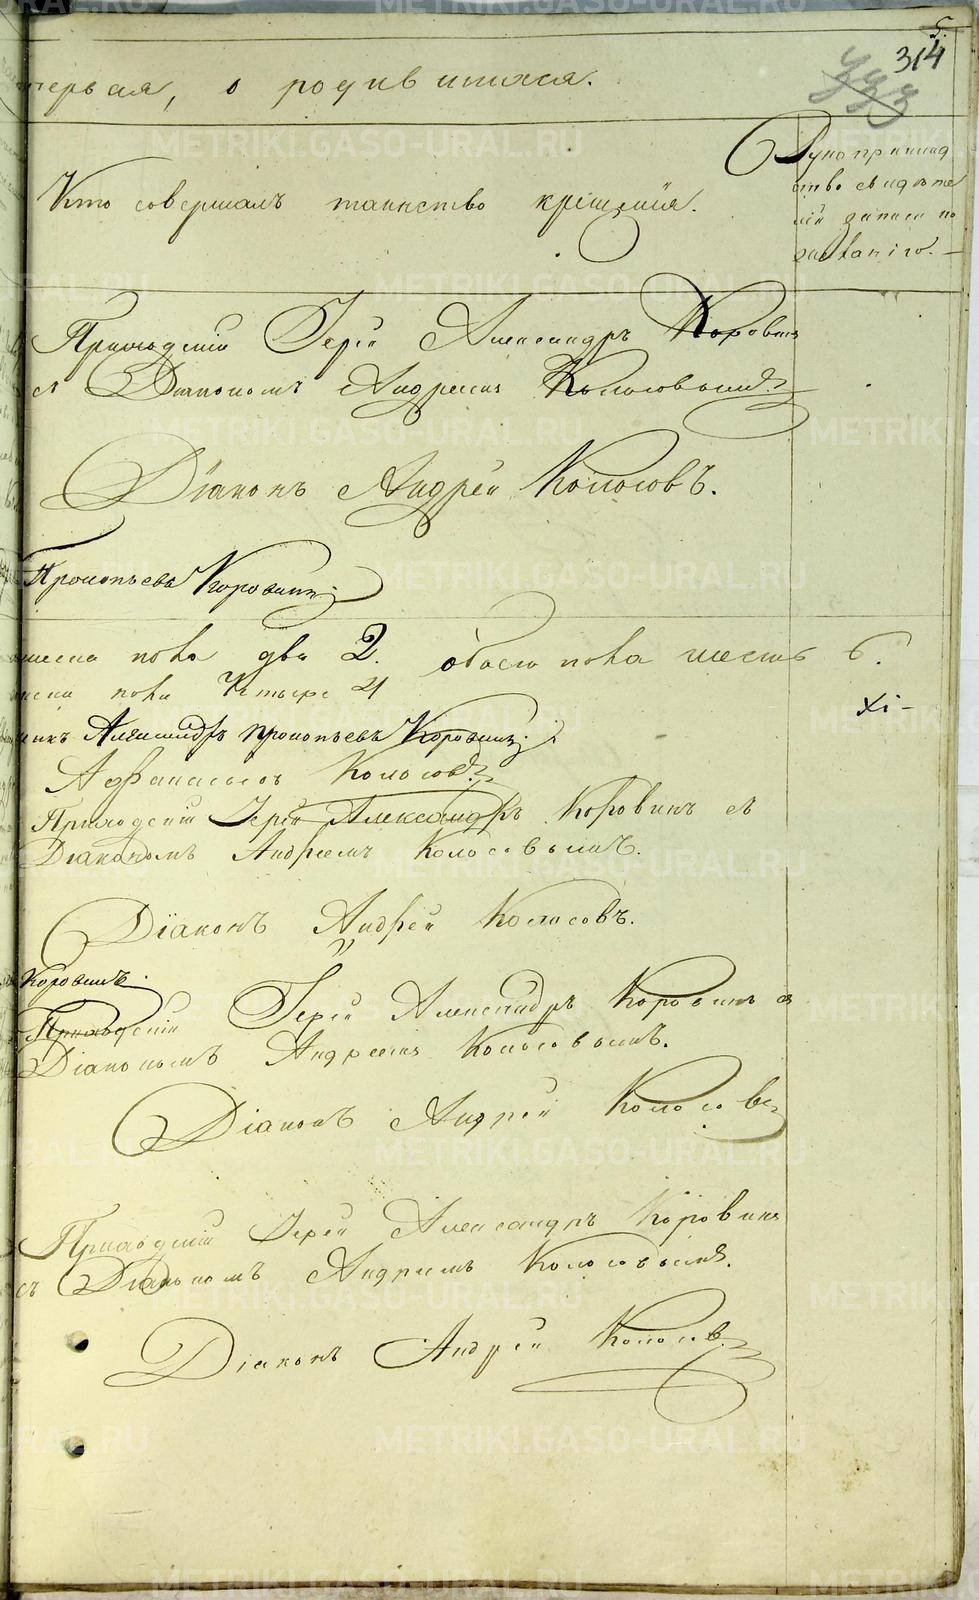 5.
314
первая, о родившихся.
Кто совершалъ таинство крещенія.
Рукоприклад
ство свидѣте
лей записи по
желанію.
Приходскій Іерей Александръ Коровинъ
съ Діакономъ Андреемъ Колосовымъ.
Діаконъ Андрей Колосовъ.
Прокопьевъ Коровинъ
пола два 2. обоего пола шесть 6.
пола Четыре 4
XI -
Александръ Прокопьевъ Коровинъ.
Афанасьевъ Колосовъ.
Приходскій Іерей Александръ Коровинъ съ
Діакономъ Андреемъ Колосовымъ.
Діаконъ Андрей Колосовъ.
Коровинъ.
Приходскій Іерей Александръ Коровинъ съ
Діакономъ Андреемъ Колосовымъ.
Діаконъ Андрей Колосовъ
Приходскій Іерей Александръ Коровинъ
съ Діакономъ Андреемъ Колосовымъ.
Діаконъ Андрей Колосовъ.
METRIKI.GASO-URAL.RU